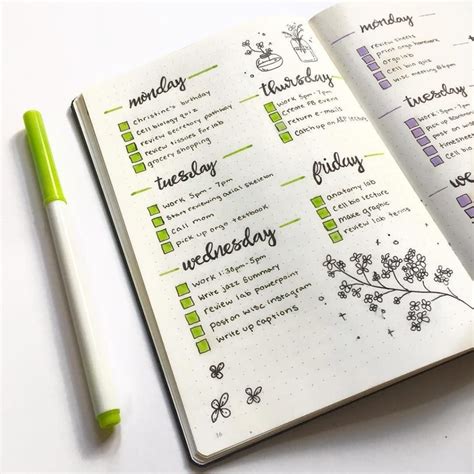 monday
christine's birthday
cell biology quiz
review secretory pathway
review tissues for lab
grocery shopping
tuesday
work 5pm - 7pm
start reviewing axial skeleton
call mom
pick up orgo textbook
wednesday
work 1:30pm-5pm
write jazz summary
review lab powerpoint
post on wisc instagram
write up captions
36
thursday
work 5pm - 7pm
create FB event
return e-mails
catch up on
friday
anatomy lab
cell bio lecture
make graphic
review lab terms
monday
review sheets
print orgo homework
orgo lab
cell bio quiz
wisc meeting
tuesday
work
pick up
post on